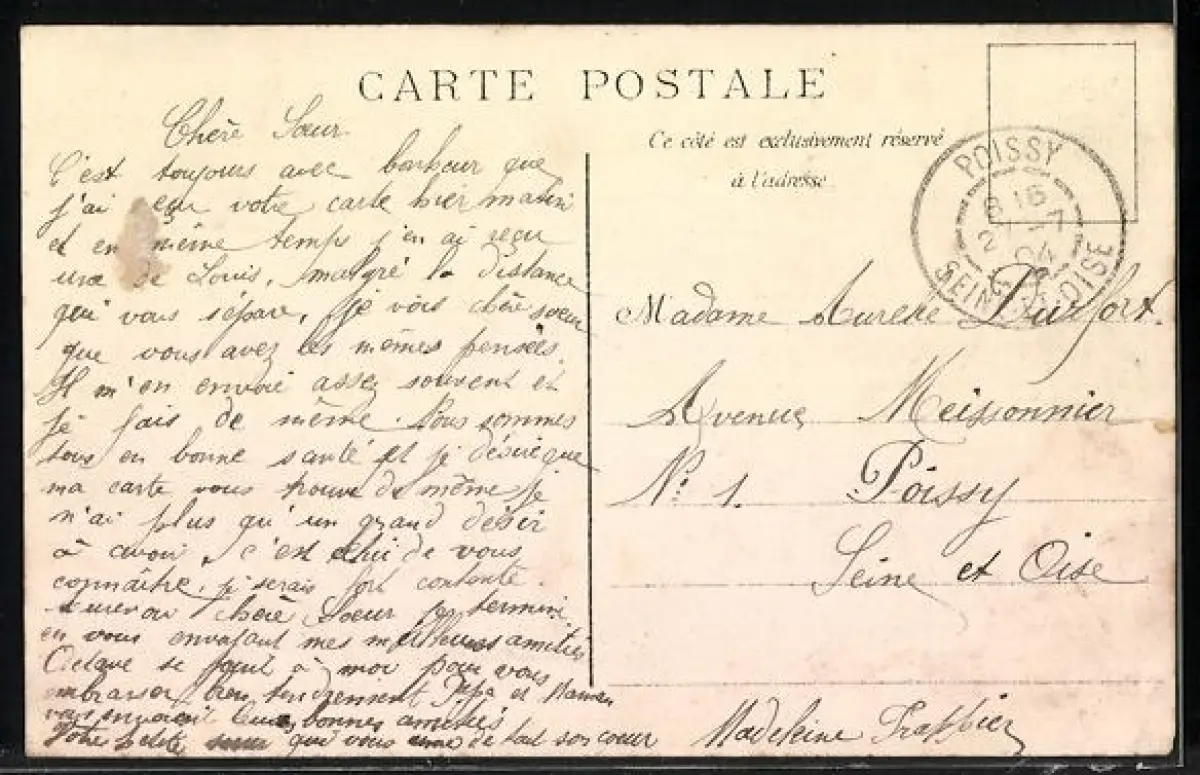 CARTE POSTALE
Ce côté est exclusivement réservé
à l'adresse
POISSY
8 16
21 -7
04
SEINE ET OISE
Chère Sœur
C'est toujours avec bonheur que
j'ai eçu votre carte hier matin
et en même temp j'en ai reçu
une de Louis, malgré la distance
qui vous sépare, je vois chère sœur
que vous avez les mêmes pensées.
Il m'en envoie assez souvent et
je fais de même. Nous sommes
tous en bonne santé et je désire que
ma carte vous trouve de même je
n'ai plus qu'un grand désir
à avoir, c'est celui de vous
connaître, je serais fort contente.
Aurevoir chère Sœur je termine
en vous envoyant mes meilleures amitiés
Octave se joint à moi pour vous
embrasser bien tendrement Papa et Maman
vous envoient leurs bonnes amitiés
Votre petite sœur qui vous aime de tout son cœur
Madeleine
Madame Aurélie
Avenue Meissonnier
N° 1. Poissy
Seine et Oise